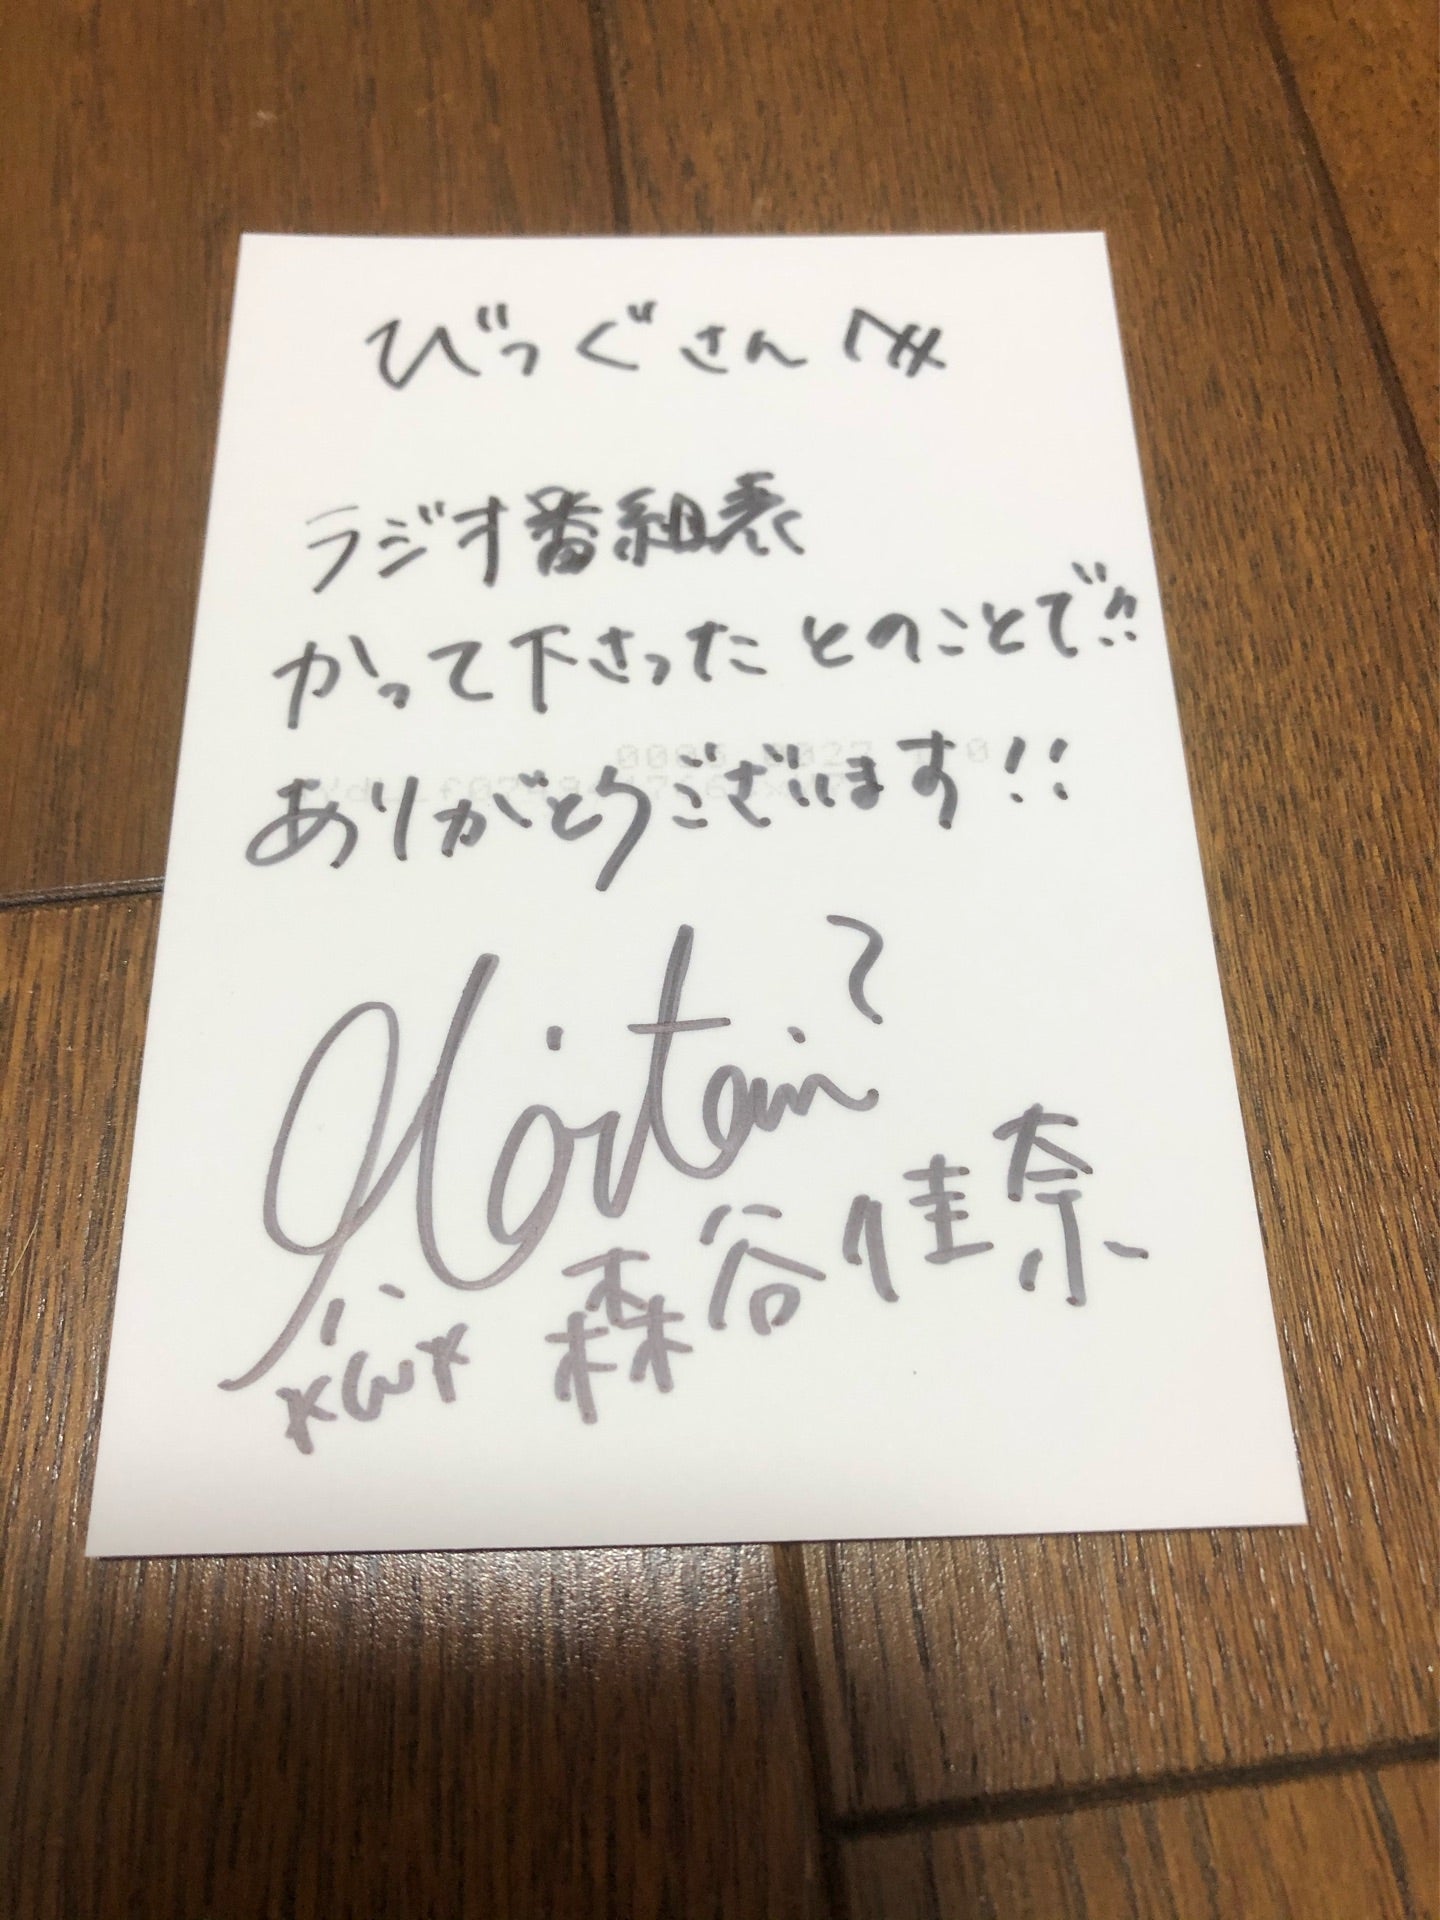 びっぐさんへ
ラジオ番組表
かって下さったとのことで!!
ありがとうございます!!
森谷佳奈